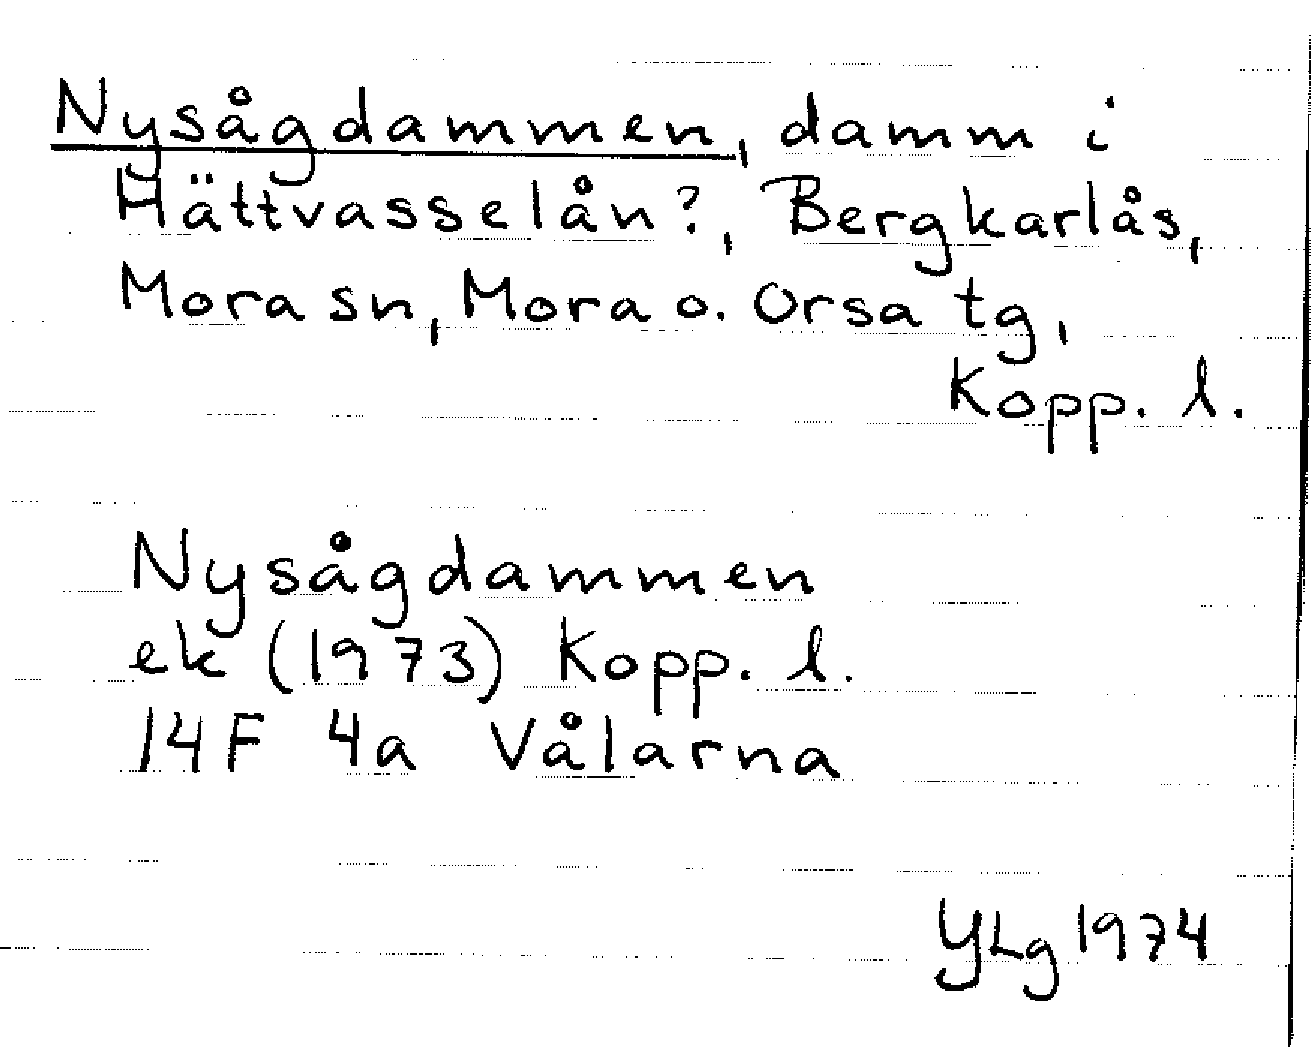 Nysågdammen, damm i
Hättvasselån?, Bergkarlås,
Mora sn, Mora o. Orsa tg,
Kopp. l.
Nysågdammen
ek (1973) Kopp. l.
14F 4a Vålarna
YLg 1974